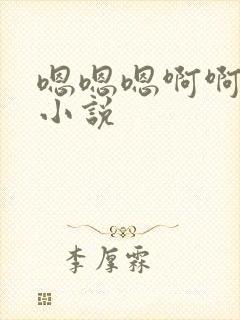 嗯嗯嗯啊啊
小说
李厚霖